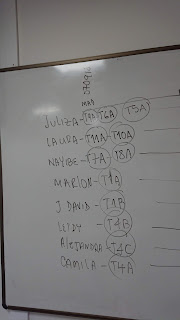 MAR
JULIZA- T6A T5A
LAURA- T11A T10A
NAYBE- T7A T8A
MARION- T1A
J DAVID- T1B
LEIDY - T4B
ALEJANDRA- T4C
CAMILA- T4A